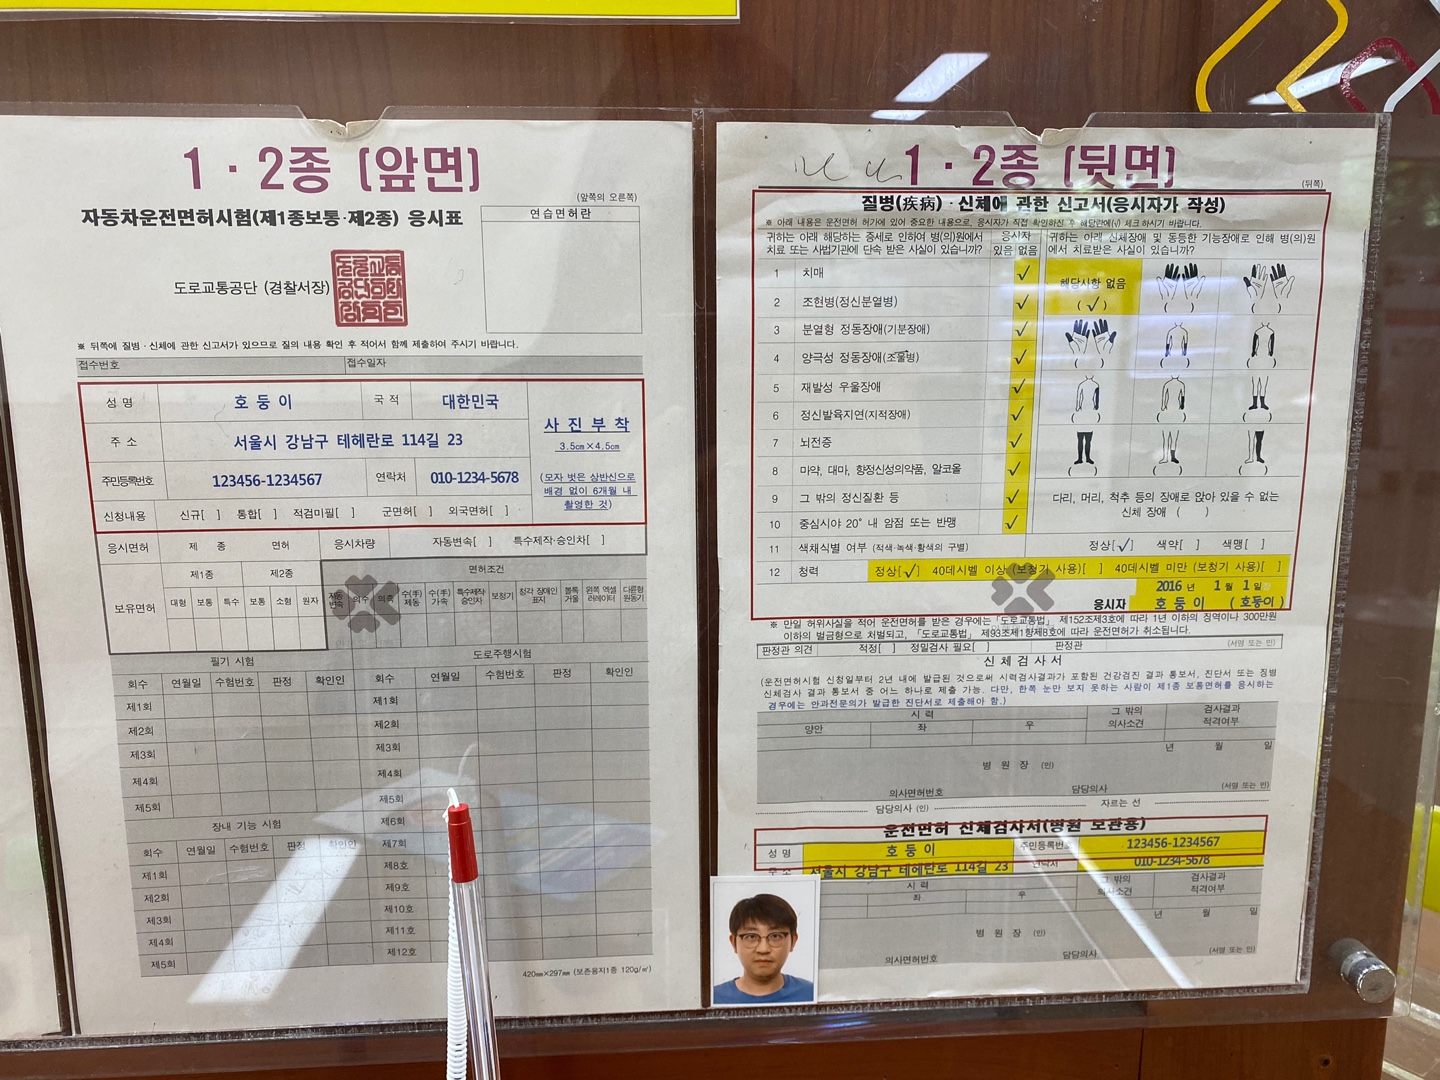 1 · 2종 [앞면]
(앞쪽의 오른쪽)
자동차운전면허시험(제1종보통·제2종) 응시표
연습면허란
도로교통공단 (경찰서장)
※ 뒤쪽에 질병·신체에 관한 신고서가 있으므로 질의 내용 확인 후 적어서 함께 제출하여 주시기 바랍니다.
접수번호 접수일자
성 명 호 둥 이 국 적 대한민국
주 소 서울시 강남구 테헤란로 114길 23
주민등록번호 123456-1234567 연락처 010-1234-5678
사 진 부 착
3.5㎝×4.5㎝
(모자 벗은 상반신으로
배경 없이 6개월 내
촬영한 것)
신청내용 신규[ ] 통합[ ] 적검미필[ ] 군면허[ ] 외국면허[ ]
응시면허 제 종 면허 응시차량 자동변속[ ] 특수제작·승인차[ ]
보유면허 제1종 제2종 면허조건
대형 보통 특수 보통 소형 원자 자동변속 의수 의족 수(手)제동 수(手)가속 특수제작승인차 보청기 청각 장애인 표지 볼록거울 왼쪽 엑셀러레이터 다륜형 원동기
필기 시험
회수 연월일 수험번호 판정 확인인
제1회
제2회
제3회
제4회
제5회
장내 기능 시험
회수 연월일 수험번호 판정 확인인
제1회
제2회
제3회
제4회
제5회
도로주행시험
회수 연월일 수험번호 판정 확인인
제1회
제2회
제3회
제4회
제5회
제6회
제7회
제8회
제9회
제10회
제11회
제12회
420㎜×297㎜ (보존용지1종 120g/㎡)
1 · 2종 [뒷면]
(뒤쪽)
질병(疾病)·신체에 관한 신고서(응시자가 작성)
※ 아래 내용은 운전면허 허가에 있어 중요한 내용으로, 응시자가 직접 확인하신 후 해당란에(√) 체크 하시기 바랍니다.
귀하는 아래 해당하는 증세로 인하여 병(의)원에서
치료 또는 사법기관에 단속 받은 사실이 있습니까?
응시자
있음 없음
귀하는 아래 신체장애 및 동등한 기능장애로 인해 병(의)원
에서 치료받은 사실이 있습니까?
1 치매 √
2 조현병(정신분열병) √
3 분열형 정동장애(기분장애) √
4 양극성 정동장애(조울병) √
5 재발성 우울장애 √
6 정신발육지연(지적장애) √
7 뇌전증 √
8 마약, 대마, 향정신성의약품, 알코올 √
9 그 밖의 정신질환 등 √
10 중심시야 20° 내 암점 또는 반맹 √
해당사항 없음
( √ )
다리, 머리, 척추 등의 장애로 앉아 있을 수 없는
신체 장애 ( )
11 색채식별 여부 (적색·녹색·황색의 구별) 정상[√] 색약[ ] 색맹[ ]
12 청력 정상[√] 40데시벨 이상 (보청기 사용)[ ] 40데시벨 미만 (보청기 사용)[ ]
2016 년 1 월 1 일
응시자 호 둥 이 (호둥이)
※ 만일 허위사실을 적어 운전면허를 받은 경우에는「도로교통법」 제152조제3호에 따라 1년 이하의 징역이나 300만원
이하의 벌금형으로 처벌되고, 「도로교통법」 제93조제1항제8호에 따라 운전면허가 취소됩니다.
판정관 의견 적정[ ] 정밀검사 필요[ ] 판정관 (서명 또는 인)
신 체 검 사 서
(운전면허시험 신청일부터 2년 내에 발급된 것으로써 시력검사결과가 포함된 건강검진 결과 통보서, 진단서 또는 징병
신체검사 결과 통보서 중 어느 하나로 제출 가능. 다만, 한쪽 눈만 보지 못하는 사람이 제1종 보통면허를 응시하는
경우에는 안과전문의가 발급한 진단서로 제출해야 함.)
시 력 그 밖의 의사소견 검사결과 적격여부
양안 좌 우
년 월 일
병 원 장 (인)
의사면허번호 담당의사 (서명 또는 인)
담당의사 (인) 자르는 선
운전면허 신체검사서(병원 보관용)
성 명 호 둥 이 주민등록번호 123456-1234567
주 소 서울시 강남구 테헤란로 114길 23 연락처 010-1234-5678
시 력 그 밖의 의사소견 검사결과 적격여부
좌 우
년 월 일
병 원 장 (인)
의사면허번호 담당의사 (서명 또는 인)